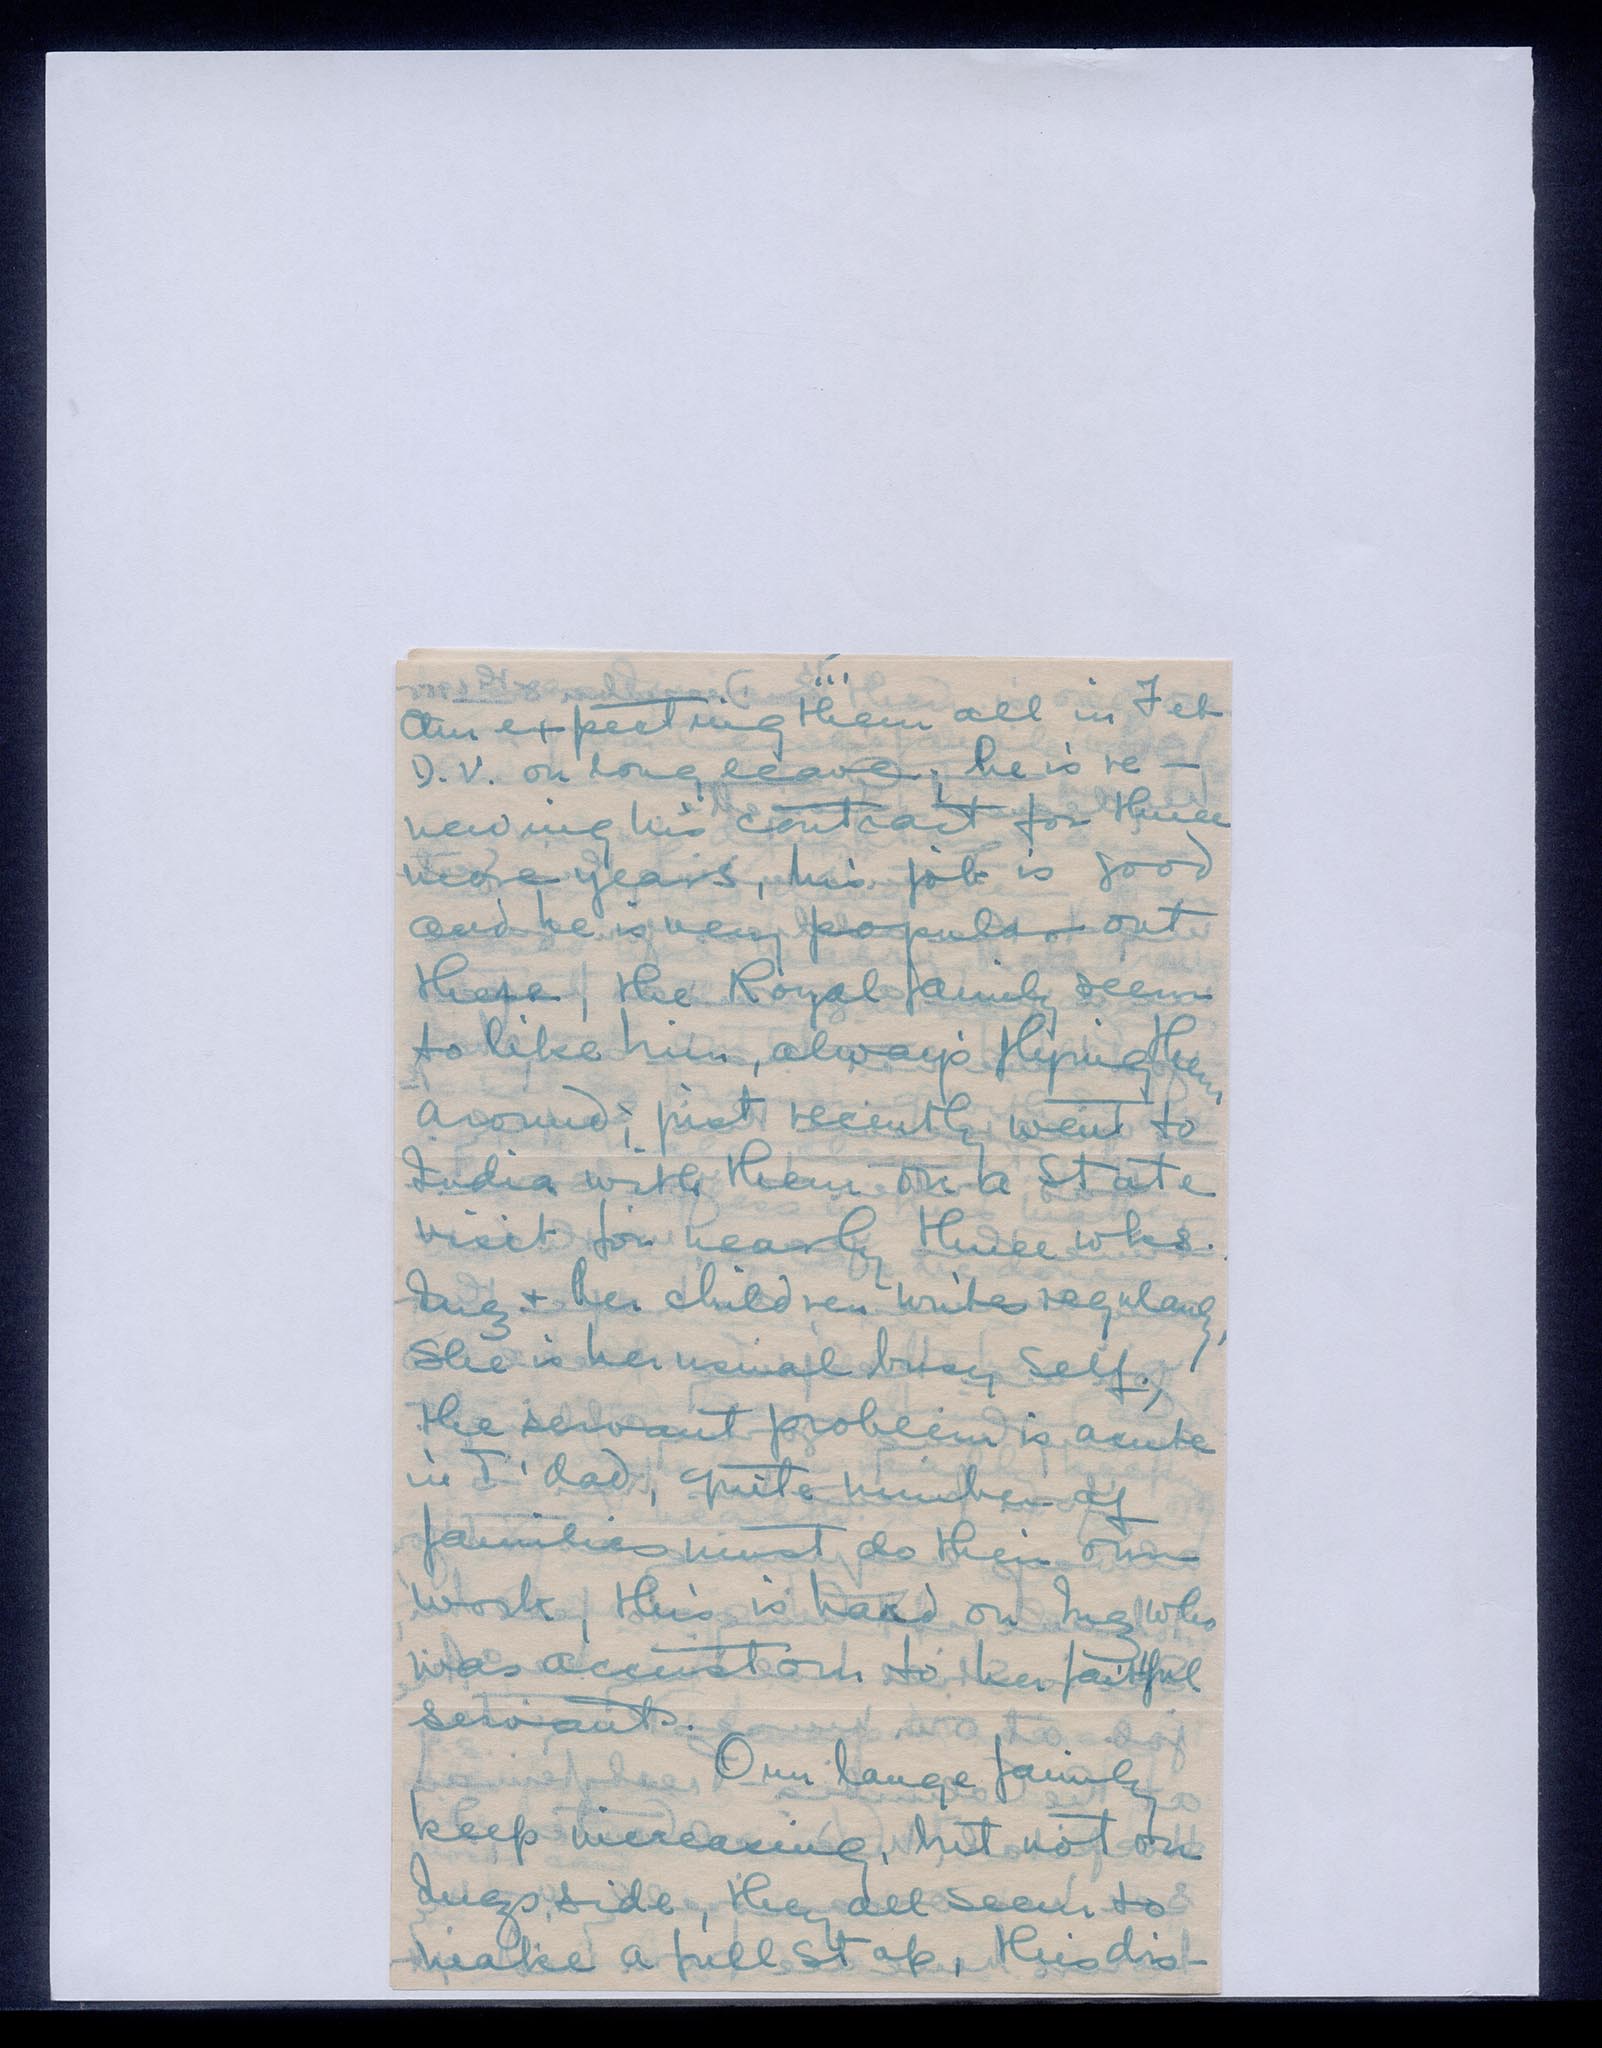 iii
Am expecting them all in Feb
D.V. on long leave; he is re-
newing his contract for three
more years, his job is good
and he is very popular out
there, the Royal family seem
to like him, always flying them
around; just recently went to
India with them on a State
visit for nearly three wks.
Ing + her children writes regularly,
She is her usual busy self,
the servant problem is acute
in T'dad, quite number of
families must do their own
work, this is hard on Ing who
was accustom to her faithful
servants.
Our large family
keep increasing, but not on
Ings side, they all seem to
make a full stop, this dis-